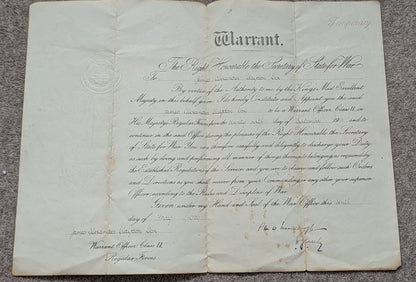 Temporary
Warrant.
The Right Honourable the Secretary of State for War
To James Alexander Clayton Cox
By virtue of the Authority to me by the King's Most Excellent
Majesty in this behalf given I do hereby Constitute and Appoint you the said
James Alexander Clayton Cox to be a Warrant Officer Class II. in
His Majesty's Regular Forces from the day of and to
continue in the said Office during the pleasure of the Right Honourable the Secretary
of State for War. You are therefore carefully and diligently to discharge your Duty
as such by doing and performing all manner of things thereunto belonging as required by
the Established Regulations of the Service and you are to observe and follow such Orders
and Directions as you shall receive from your Commanding or any other your superior
Officer, according to the Rules and Discipline of War.
Given under my Hand and Seal of the War Office this
day of
James Alexander Clayton Cox
Warrant Officer Class II.
Regular Forces